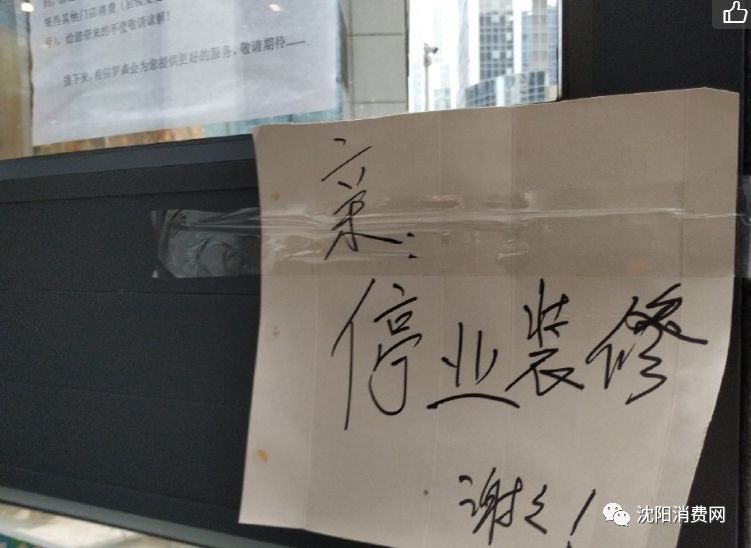 您当其他门店消费（
号）。给您带来的不便敬请谅解！
接下来，相信罗森会为您提供更好的服务，敬请期待……
亲：
停业装修
谢谢！
沈阳消费网